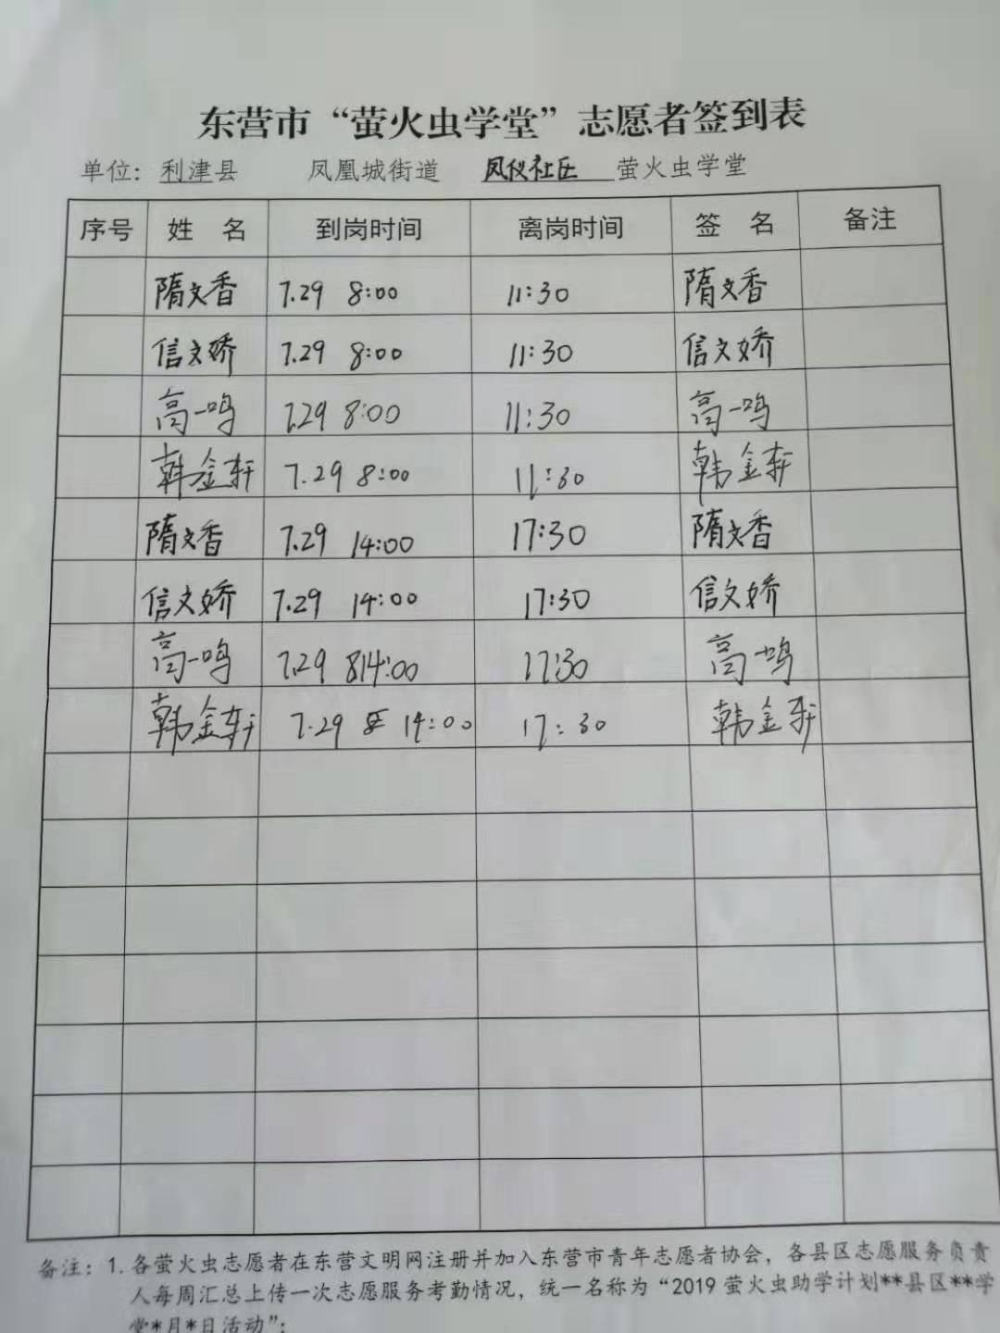 东营市“萤火虫学堂”志愿者签到表
单位：利津县 凤凰城街道 凤仪社区 萤火虫学堂
序号 姓 名 到岗时间 离岗时间 签 名 备注
隋文香 7.29 8:00 11:30 隋文香
信文娇 7.29 8:00 11:30 信文娇
高一鸣 7.29 8:00 11:30 高一鸣
韩金轩 7.29 8:00 11:30 韩金轩
隋文香 7.29 14:00 17:30 隋文香
信文娇 7.29 14:00 17:30 信文娇
高一鸣 7.29 814:00 17:30 高一鸣
韩金轩 7.29 14:00 17:30 韩金轩
备注：1. 各萤火虫志愿者在东营文明网注册并加入东营市青年志愿者协会，各县区志愿服务负责
人每周汇总上传一次志愿服务考勤情况，统一名称为“2019 萤火虫助学计划**县区**学
堂*月*日活动”；